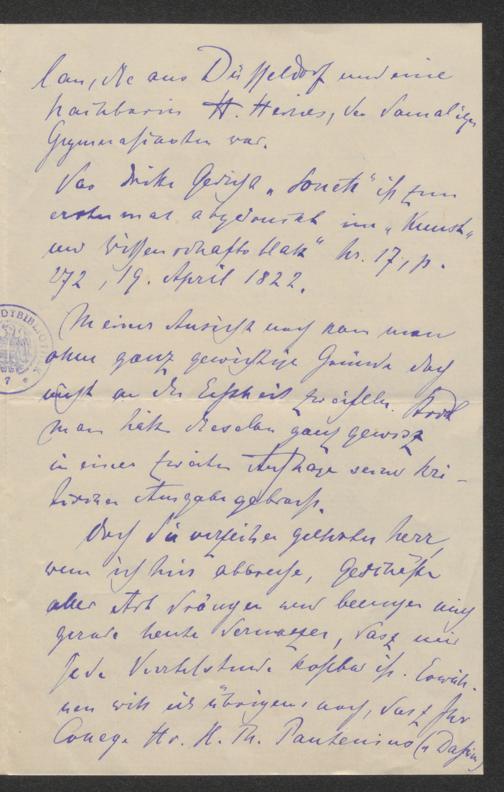 lan, die aus Düsseldorf und eine
Nachbarin H. Heines, des damaligen
Gymnasiasten war.
Das dritte Gedicht „Sonett“ ist zum
erstenmal abgedruckt im „Kunst-
und Wissenschaftsblatt“ Nr. 17, p.
272, 19. April 1822.
Meiner Ansicht nach kan man
ohne ganz gewichtige Gründe doch
nicht an der Echtheit zweifeln.
man hätte dieselben ganz gewiss
in einer zweiten Auflage seiner kri-
tischen Ausgabe gebracht.
Doch Sie verzeihen geehrter Herr,
wenn ich hier abbreche, Geschäfte
aller Art drängen und beengen mich
gerade heute dermassen, dasz mir
jede Viertelstunde kostbar ist. Erwäh-
nen will ich übrigens noch, dasz Ihr
College Hr. H. Th. Pantenius (
STADTBIBLIOTHEK